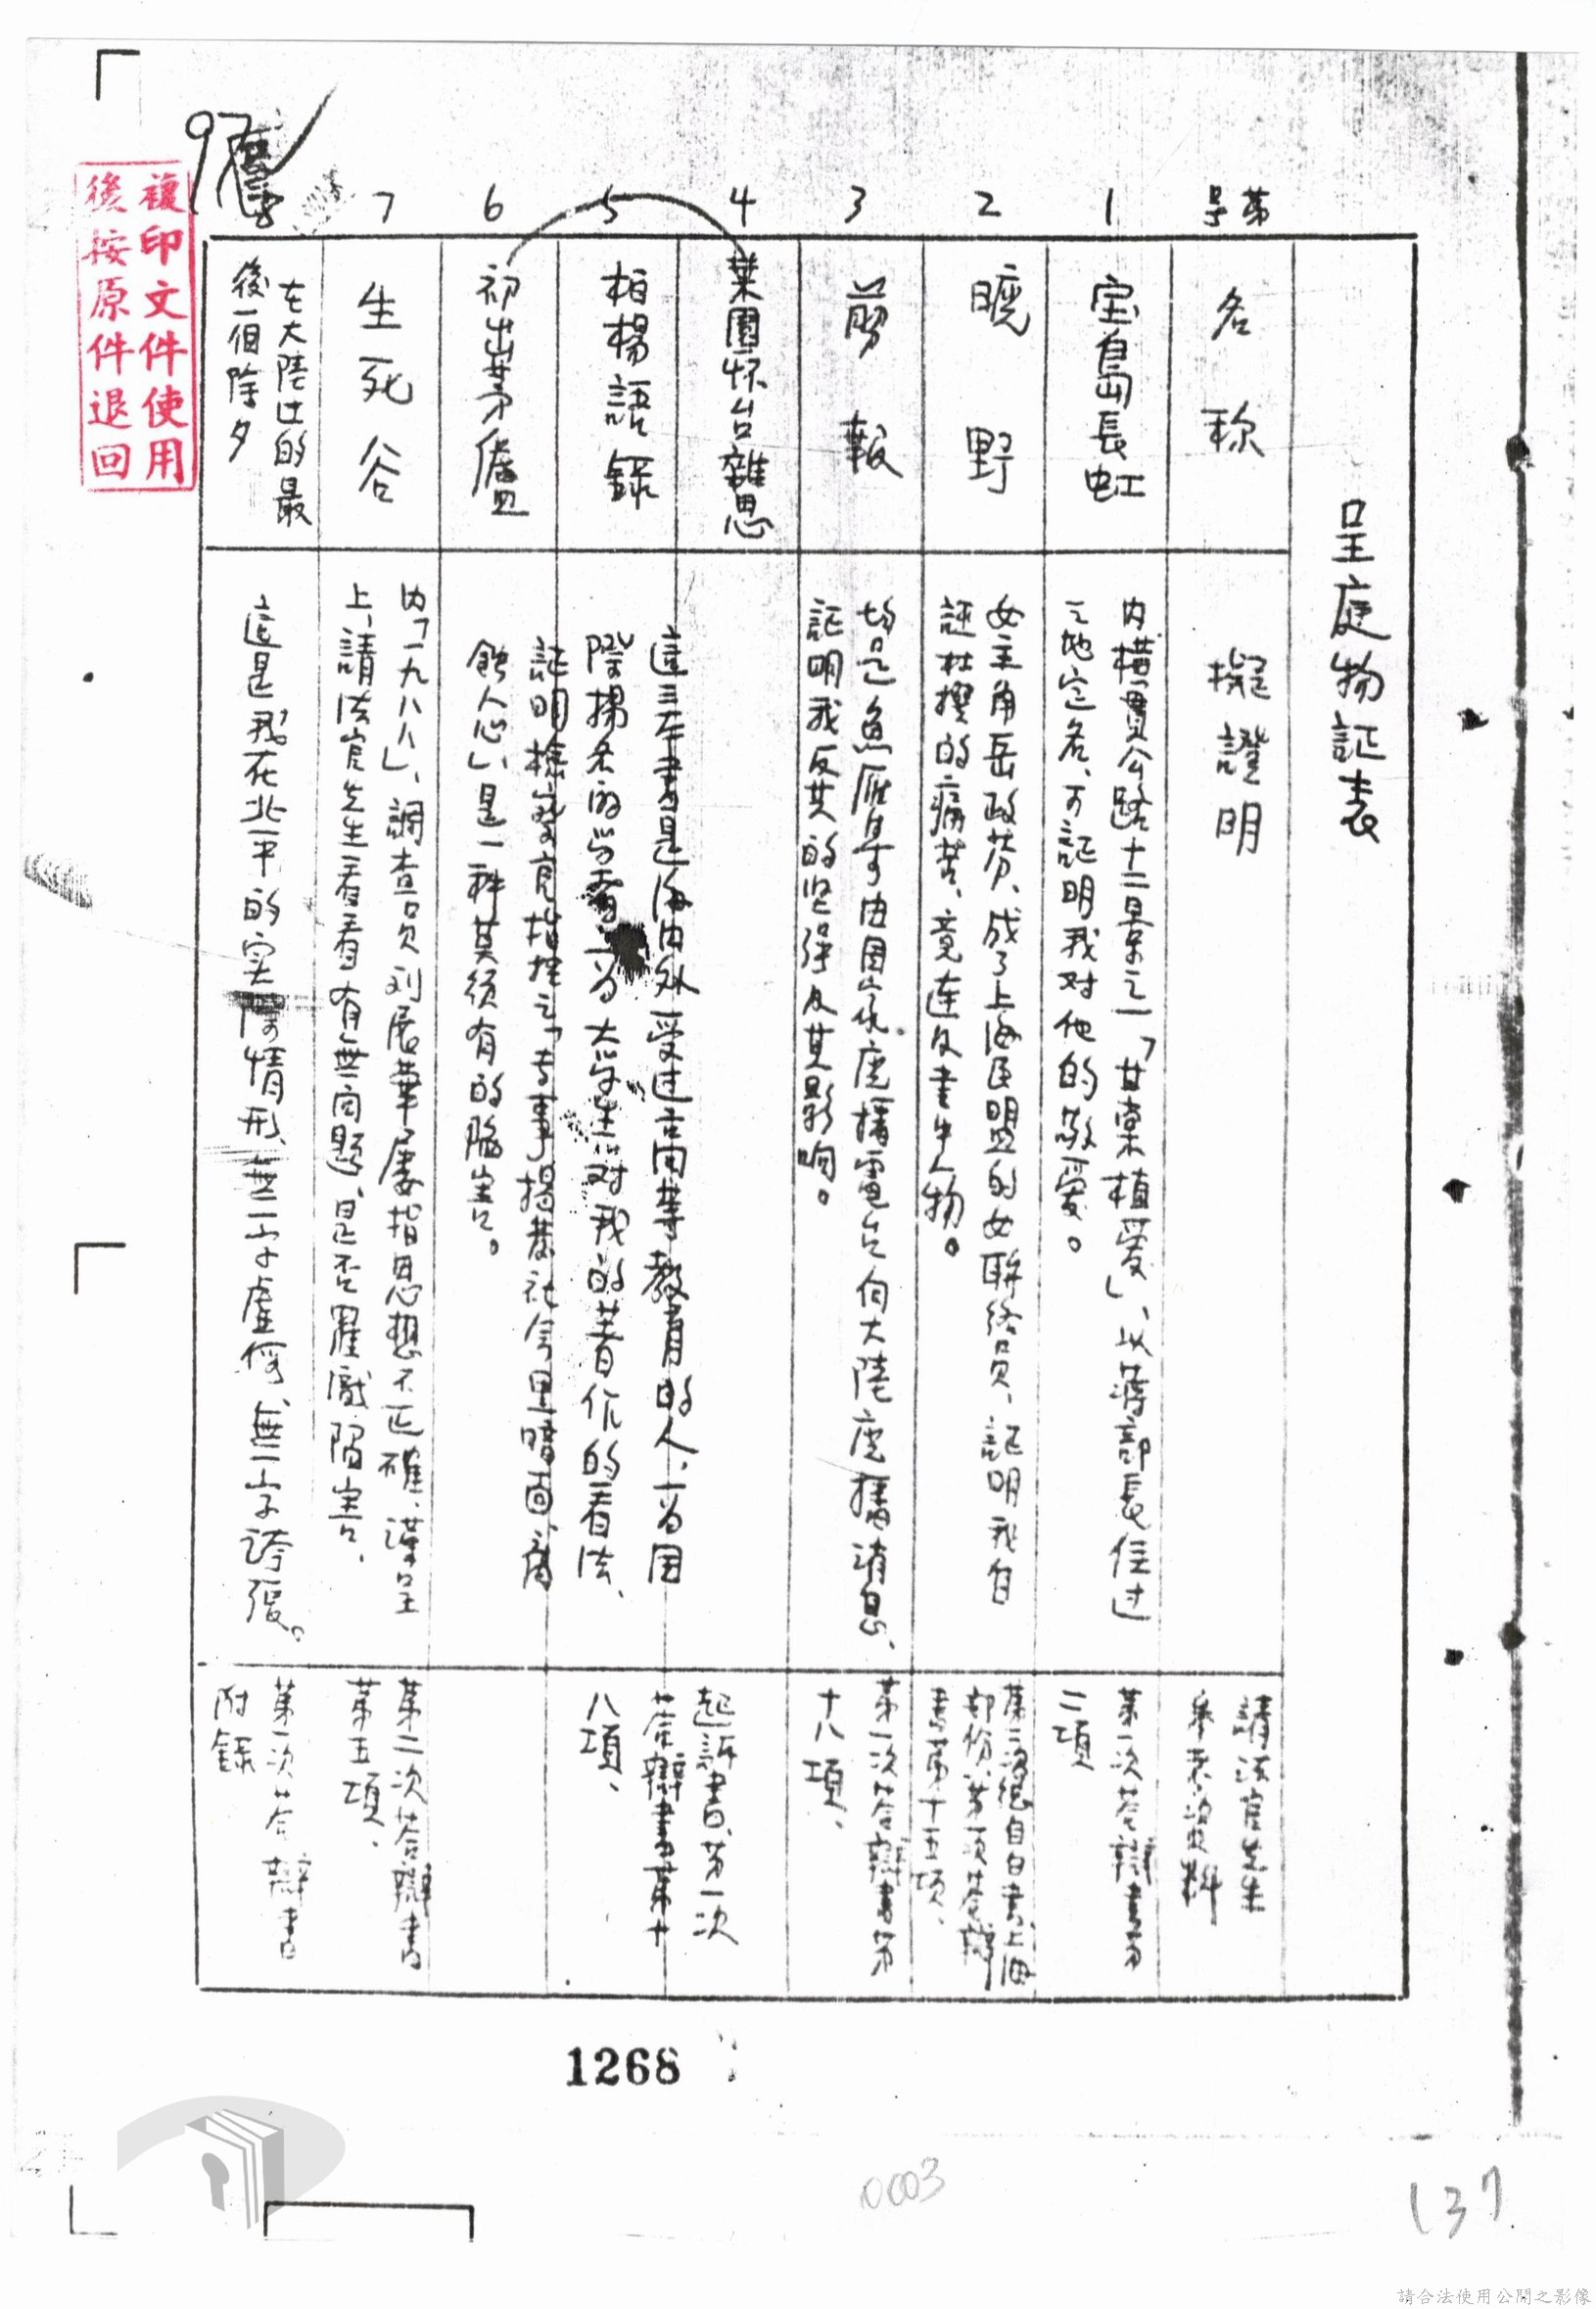 呈庭物証表
第号
名称
擬證明
請法官先生
參考資料
1
宝島長虹
內橫貫公路十二景之一「甘棠植愛」、以蔣部長住过
之地定名、可証明我对他的敬爱。
第一次答辯書第
二項
2
曠野
女主角岳政芬、成了上海民盟的女聯絡員、証明我自
証杜撰的痛苦、竟連及書中人物。
自白書、上海
部份、第一次答辯
書第十五項、
3
剪報
均是魚雁集寄由国家廣播電台向大陸廣播消息、
証明我反共的坚强及其影响。
第一次答辯書第
十八項、
4
葉園怀台雜思
5
柏楊語錄
6
初出茅廬
這三本書是海內外受过高等教育的人、为国
際揚名的学者、为大学生对我的著作的看法、
証明檢察官指控之「专事揭發社会黑暗面、腐
蝕人心」、是一种莫須有的陷害。
起訴書、第一次
答辯書第十
八項、
7
生死谷
內「一九八八」、調查員刘展華屢指思想不正確、謹呈
上、請法官先生看看有無问题、是否羅織陷害、
第二次答辯書
第五項、
8
在大陸上的最
後一個除夕
這是我在北平的实際情形、無一字虛偽、無一字誇張。
第一次答辯書
附錄
97
複印文件使用
後按原件退回
1268
0003
137
請合法使用公開之影像